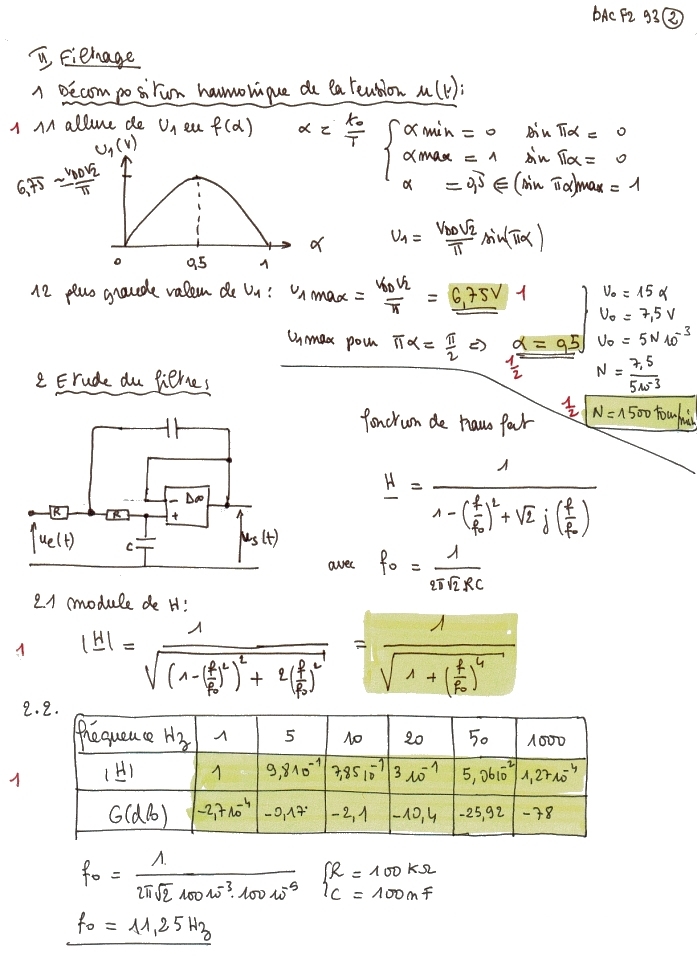 BAC F2 93 2
II Filtrage
1 Décomposition harmonique de la tension u(t):
1 11 allure de U1 en f(α) α = to/T { α min = 0 sin πα = 0
α max = 1 sin πα = 0
α = 0,5 ∈ (sin πα)max = 1
U1(V)
6,75 ~ VDD√2/π
0 0,5 1 α
U1 = VDD√2/π sin(πα)
12 plus grande valeur de U1: U1 max = VDD√2/π = 6,75V 1
U1max pour πα = π/2 => α = 0,5
1/2
U0 = 15 α
U0 = 7,5 V
U0 = 5 N 10^-3
N = 7,5/5 10^-3
1/2 N = 1500 tour/min
2 Etude du filtres
fonction de transfert
R R C - + Δ∞
ue(t) us(t)
H = 1/(1-(f/f0)^2 + √2 j (f/f0))
avec f0 = 1/(2π√2 RC)
2.1 module de H:
1 |H| = 1/√((1-(f/f0)^2)^2 + 2(f/f0)^2) = 1/√(1+(f/f0)^4)
2.2.
fréquence Hz 1 5 10 20 50 1000
1 |H| 1 9,8 10^-1 7,85 10^-1 3 10^-1 5,06 10^-2 1,27 10^-4
G(db) -2,7 10^-4 -0,17 -2,1 -10,4 -25,92 -78
f0 = 1/(2π√2 100 10^-3 . 100 10^-9) { R = 100 KΩ
C = 100 nF
f0 = 11,25 Hz